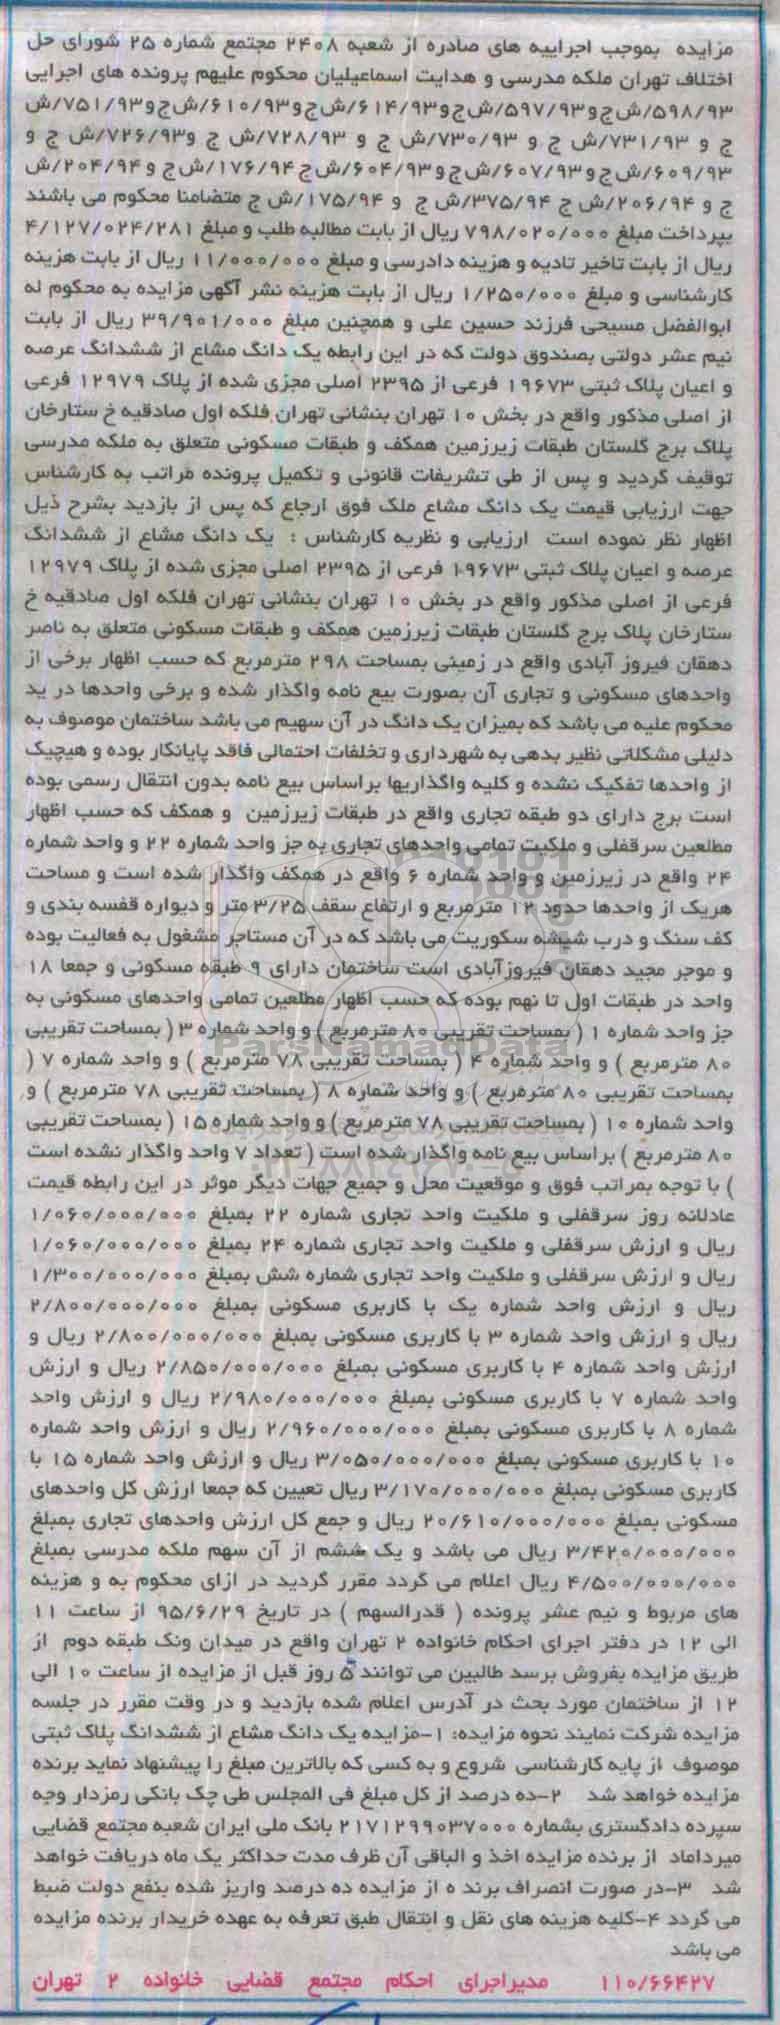 مزایده بموجب اجراییه های صادره از شعبه ۲۴۰۸ مجتمع شماره ۲۵ شورای حل
اختلاف تهران ملکه مدرسی و هدایت اسماعیلیان محکوم علیهم پرونده های اجرایی
۵۹۸/۹۳/ش ج و ۵۹۷/۹۳/ش ج و ۶۱۴/۹۳/ش ج و ۶۱۰/۹۳/ش ج و ۷۵۱/۹۳/ش
ج و ۷۳۱/۹۳/ش ج و ۷۳۰/۹۳/ش ج و ۷۲۸/۹۳/ش ج و ۷۲۶/۹۳/ش ج و
۶۰۹/۹۳/ش ج و ۶۰۷/۹۳/ش ج و ۶۰۴/۹۳/ش ج ۱۷۶/۹۴/ش ج و ۲۰۴/۹۴/ش
ج و ۲۰۶/۹۴/ش ج ۳۷۵/۹۴/ش ج و ۱۷۵/۹۴/ش ج متضامنا محکوم می باشند
بپرداخت مبلغ ۷۹۸/۰۲۰/۰۰۰ ریال از بابت مطالبه طلب و مبلغ ۴/۱۲۷/۰۲۴/۲۸۱
ریال از بابت تاخیر تادیه و هزینه دادرسی و مبلغ ۱۱/۰۰۰/۰۰۰ ریال از بابت هزینه
کارشناسی و مبلغ ۱/۲۵۰/۰۰۰ ریال از بابت هزینه نشر آگهی مزایده به محکوم له
ابوالفضل مسیحی فرزند حسین علی و همچنین مبلغ ۳۹/۹۰۱/۰۰۰ ریال از بابت
نیم عشر دولتی بصندوق دولت که در این رابطه یک دانگ مشاع از ششدانگ عرصه
و اعیان پلاک ثبتی ۱۹۶۷۳ فرعی از ۲۳۹۵ اصلی مجزی شده از پلاک ۱۲۹۷۹ فرعی
از اصلی مذکور واقع در بخش ۱۰ تهران بنشانی تهران فلکه اول صادقیه خ ستارخان
پلاک برج گلستان طبقات زیرزمین همکف و طبقات مسکونی متعلق به ملکه مدرسی
توقیف گردید و پس از طی تشریفات قانونی و تکمیل پرونده مراتب به کارشناس
جهت ارزیابی قیمت یک دانگ مشاع ملک فوق ارجاع که پس از بازدید بشرح ذیل
اظهار نظر نموده است ارزیابی و نظریه کارشناس : یک دانگ مشاع از ششدانگ
عرصه و اعیان پلاک ثبتی ۱۹۶۷۳ فرعی از ۲۳۹۵ اصلی مجزی شده از پلاک ۱۲۹۷۹
فرعی از اصلی مذکور واقع در بخش ۱۰ تهران بنشانی تهران فلکه اول صادقیه خ
ستارخان پلاک برج گلستان طبقات زیرزمین همکف و طبقات مسکونی متعلق به ناصر
دهقان فیروز آبادی واقع در زمینی بمساحت ۲۹۸ مترمربع که حسب اظهار برخی از
واحدهای مسکونی و تجاری آن بصورت بیع نامه واگذار شده و برخی واحدها در ید
محکوم علیه می باشد که بمیزان یک دانگ در آن سهیم می باشد ساختمان موصوف به
دلیلی مشکلاتی نظیر بدهی به شهرداری و تخلفات احتمالی فاقد پایانکار بوده و هیچیک
از واحدها تفکیک نشده و کلیه واگذاریها براساس بیع نامه بدون انتقال رسمی بوده
است برج دارای دو طبقه تجاری واقع در طبقات زیرزمین و همکف که حسب اظهار
مطلعین سرقفلی و ملکیت تمامی واحدهای تجاری به جز واحد شماره ۲۲ و واحد شماره
۲۴ واقع در زیرزمین و واحد شماره ۶ واقع در همکف واگذار شده است و مساحت
هریک از واحدها حدود ۱۲ مترمربع و ارتفاع سقف ۳/۲۵ متر و دیواره قفسه بندی و
کف سنگ و درب شیشه سکوریت می باشد که در آن مستاجر مشغول به فعالیت بوده
و موجر مجید دهقان فیروزآبادی است ساختمان دارای ۹ طبقه مسکونی و جمعا ۱۸
واحد در طبقات اول تا نهم بوده که حسب اظهار مطلعین تمامی واحدهای مسکونی به
جز واحد شماره ۱ ( بمساحت تقریبی ۸۰ مترمربع ) و واحد شماره ۳ ( بمساحت تقریبی
۸۰ مترمربع ) و واحد شماره ۴ ( بمساحت تقریبی ۷۸ مترمربع ) و واحد شماره ۷ (
بمساحت تقریبی ۸۰ مترمربع ) و واحد شماره ۸ ( بمساحت تقریبی ۷۸ مترمربع ) و
واحد شماره ۱۰ ( بمساحت تقریبی ۷۸ مترمربع ) و واحد شماره ۱۵ ( بمساحت تقریبی
۸۰ مترمربع ) براساس بیع نامه واگذار شده است ( تعداد ۷ واحد واگذار نشده است
) با توجه بمراتب فوق و موقعیت محل و جمیع جهات دیگر موثر در این رابطه قیمت
عادلانه روز سرقفلی و ملکیت واحد تجاری شماره ۲۲ بمبلغ ۱/۰۶۰/۰۰۰/۰۰۰
ریال و ارزش سرقفلی و ملکیت واحد تجاری شماره ۲۴ بمبلغ ۱/۰۶۰/۰۰۰/۰۰۰
ریال و ارزش سرقفلی و ملکیت واحد تجاری شماره شش بمبلغ ۱/۳۰۰/۰۰۰/۰۰۰
ریال و ارزش واحد شماره یک با کاربری مسکونی بمبلغ ۲/۸۰۰/۰۰۰/۰۰۰
ریال و ارزش واحد شماره ۳ با کاربری مسکونی بمبلغ ۲/۸۰۰/۰۰۰/۰۰۰ ریال و
ارزش واحد شماره ۴ با کاربری مسکونی بمبلغ ۲/۸۵۰/۰۰۰/۰۰۰ ریال و ارزش
واحد شماره ۷ با کاربری مسکونی بمبلغ ۲/۹۸۰/۰۰۰/۰۰۰ ریال و ارزش واحد
شماره ۸ با کاربری مسکونی بمبلغ ۲/۹۶۰/۰۰۰/۰۰۰ ریال و ارزش واحد شماره
۱۰ با کاربری مسکونی بمبلغ ۳/۰۵۰/۰۰۰/۰۰۰ ریال و ارزش واحد شماره ۱۵ با
کاربری مسکونی بمبلغ ۳/۱۷۰/۰۰۰/۰۰۰ ریال تعیین که جمعا ارزش کل واحدهای
مسکونی بمبلغ ۲۰/۶۱۰/۰۰۰/۰۰۰ ریال و جمع کل ارزش واحدهای تجاری بمبلغ
۳/۴۲۰/۰۰۰/۰۰۰ ریال می باشد و یک ششم از آن سهم ملکه مدرسی بمبلغ
۴/۵۰۰/۰۰۰/۰۰۰ ریال اعلام می گردد مقرر گردید در ازای محکوم به و هزینه
های مربوط و نیم عشر پرونده ( قدرالسهم ) در تاریخ ۹۵/۶/۲۹ از ساعت ۱۱
الی ۱۲ در دفتر اجرای احکام خانواده ۲ تهران واقع در میدان ونک طبقه دوم از
طریق مزایده بفروش برسد طالبین می توانند ۵ روز قبل از مزایده از ساعت ۱۰ الی
۱۲ از ساختمان مورد بحث در آدرس اعلام شده بازدید و در وقت مقرر در جلسه
مزایده شرکت نمایند نحوه مزایده: ۱-مزایده یک دانگ مشاع از ششدانگ پلاک ثبتی
موصوف از پایه کارشناسی شروع و به کسی که بالاترین مبلغ را پیشنهاد نماید برنده
مزایده خواهد شد ۲-ده درصد از کل مبلغ فی المجلس طی چک بانکی رمزدار وجه
سپرده دادگستری بشماره ۲۱۷۱۲۹۹۰۳۷۰۰۰ بانک ملی ایران شعبه مجتمع قضایی
میرداماد از برنده مزایده اخذ و الباقی آن ظرف مدت حداکثر یک ماه دریافت خواهد
شد ۳-در صورت انصراف برند ه از مزایده ده درصد واریز شده بنفع دولت ضبط
می گردد ۴-کلیه هزینه های نقل و انتقال طبق تعرفه به عهده خریدار برنده مزایده
می باشد
۱۱۰/۶۶۴۲۷ مدیراجرای احکام مجتمع قضایی خانواده ۲ تهران
ParsNamadData